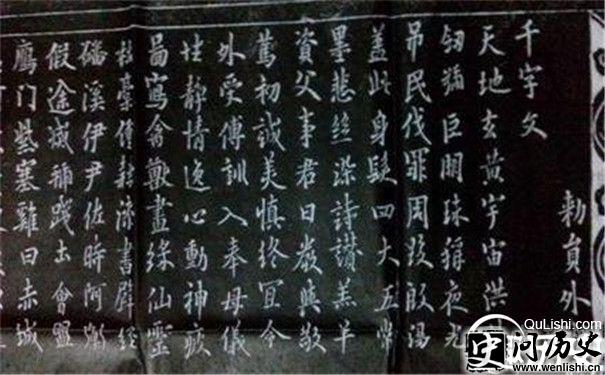 勅員外
千字文
天地玄黃宇宙洪
劒號巨闕珠稱夜光
吊民伐罪周發殷湯
蓋此身髮四大五常
墨悲絲染詩讚羔羊
資父事君曰嚴與敬
篤初誠美慎終宜令
外受傅訓入奉母儀
性靜情逸心動神疲
圖寫禽獸畫綵仙靈
杜稾鍾隸漆書壁經
磻溪伊尹佐時阿衡
假途滅虢踐土會盟
鴈門紫塞雞田赤城
QuLishi.com
问历史
www.wenlishi.cn